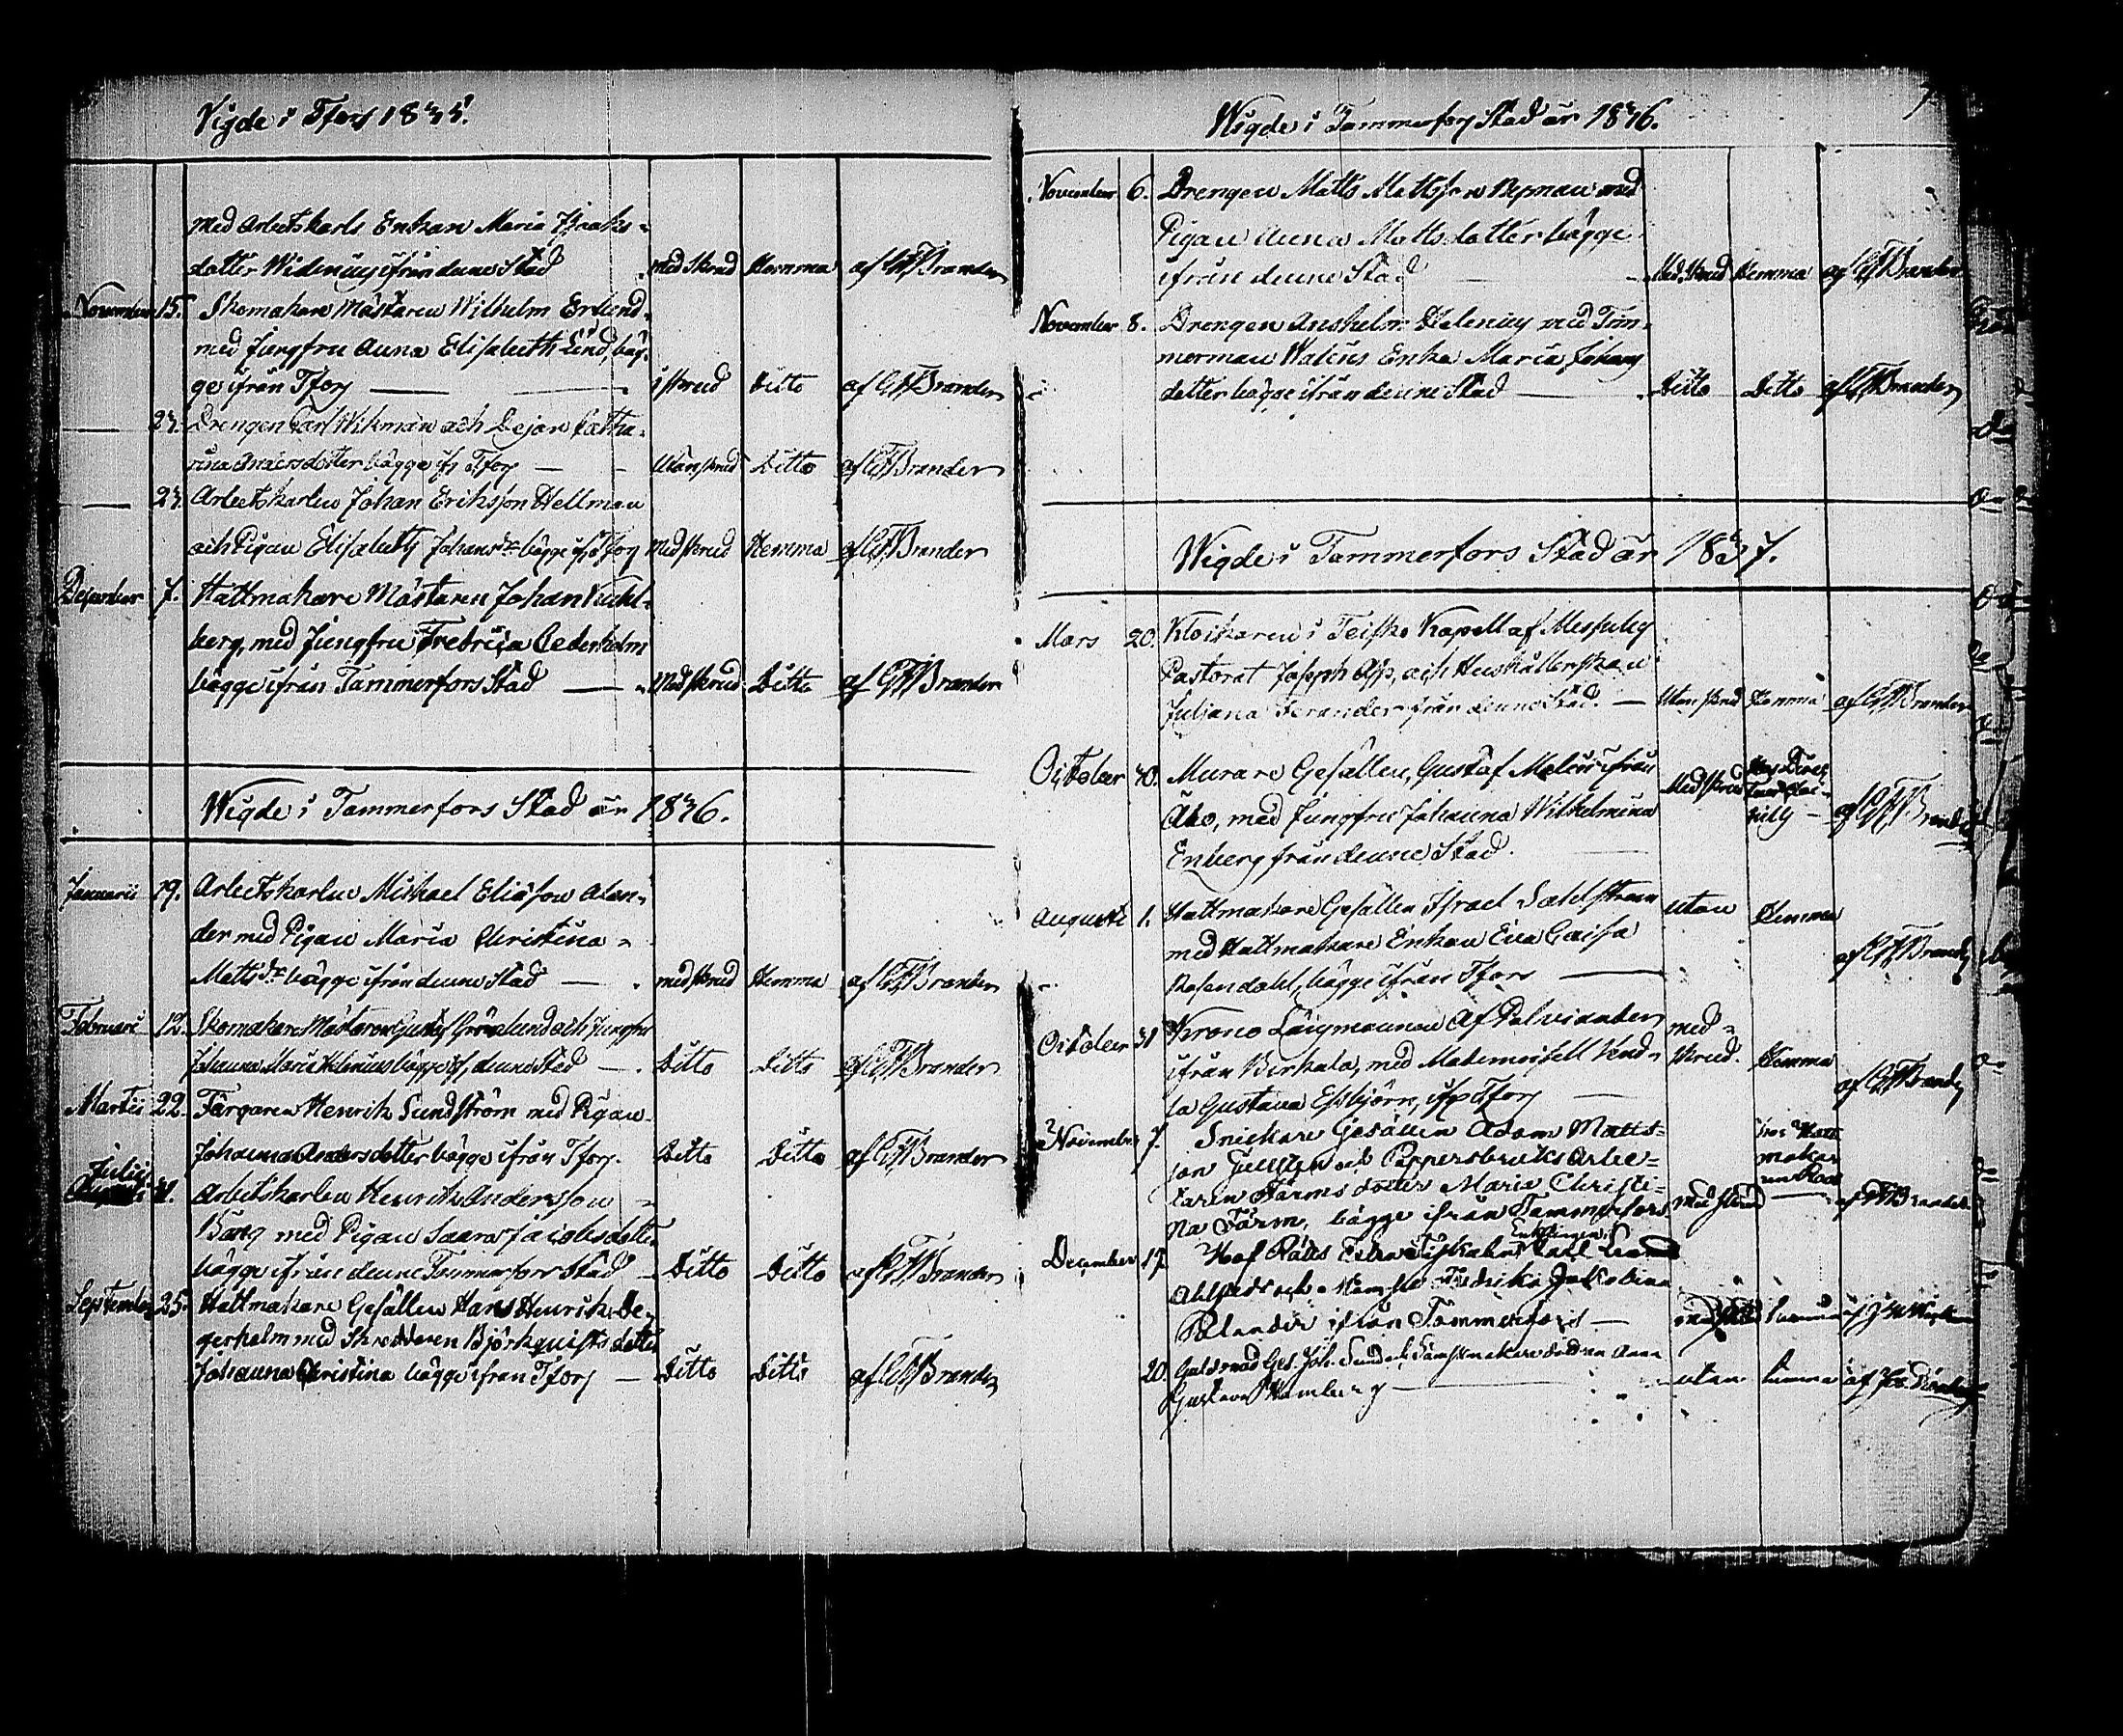 Vigde i Tfors 1835.
med Arbetskarls Enkan Maria Isaks-
dotter Widenius ifrån denne Stad - med skrud Hemma af C F Brander
November 15. Skomakare Mästaren Wilhelm Erlund
med Jungfru Anna Elisabeth Lind, båg-
ge ifrån Tfors — i skrud Ditto af C F Brander
— 23. Drengen Carl Wikman och Dejan Catha-
rina Andersdotter bägge ifr Tfors — Utan skrud Ditto af C F Brander
— 23. Arbetskarlen Johan Eriksson Hellman
och Pigan Elisabeth Johansdr bägge ifr Tfors Med skrud Hemma af C F Brander
December 7. Hattmakare Mästaren Johan
berg, med Jungfru Fredrica Cederholm
bägge ifrån Tammerfors Stad — Med skrud Ditto af C F Brander
Wigde i Tammerfors Stad år 1836.
Januarii 19. Arbetskarlen Mickael Eliasson Alan-
der med Pigan Maria Christina
Mattsdr bägge ifrån denne Stad — med skrud Hemma af C F Brander
Februarii 12. Skomakare Mästaren Gustaf Grönlund och Jungfru
Johanna Maria Helenius bägge if, denne Stad — Ditto Ditto af C F Brander
Martii 22. Färgaren Henrik Sundström med Pigan
Johanna Andersdotter bägge ifrån Tfors. Ditto Ditto af C F Brander
Julii 31. Arbetskarlen Henrik Andersson
Barg med Pigan Saara Jacobsdotter
bägge ifrån denne Tammerfors Stad — Ditto Ditto af C F Brander
September 25. Hattmakare Gesällen Hans Henrik De-
gerholm med Skreddaren Björkquists dotter
Johanna Christina bägge ifrån Tfors — Ditto Ditto af C F Brander
Wigde i Tammerfors Stad år 1836.
November 6. Drengen Matts Mattsson Nepman med
Pigan Anna Mattsdotter bägge
ifrån denne Stad — Med skrud Hemma af C F Brander
November 8. Drengen Anshelm Helenius med Tim-
merman Walens Enka Maria Johans
dotter bägge ifrån denne Stad — Ditto Ditto af C F Brander
Wigde i Tammerfors Stad år 1837.
Mars 20. Klockaren i Teisko Kapell af Messuby
Pastorat Joseph Asp, och Hushållerskan
Juliana Ferander från denne Stad. — Utan skrud Hemma af C F Brander
October 30. Murare Gesällen, Gustaf Melin ifrån Med skrud Hos
Åbo, med Jungfru Johanna Wilhelmina af C F Brander
Enberg från denne Stad.
Augusti 1. Hattmakare Gesällen Israel Dahlström utan Hemma
med Hattmakare Enkan Eva Caisa
Rosendahl, bägge ifrån Tfors — af C F Brander
October 31 Krono Länsmannen Af Palviander med
ifrån Birkala, med Mademoisell Vend- skrud. Hemma
la Gustava Essbjörn, ifr Tfors — af C F Brander
November 7. Snickare Gesällen Adam Matts- hos Hatt
son och Pappersbruks Arbe- maka-
taren Färms dotter Maria Christi- ren Roos
na Färm, bägge ifrån Tammerfors med skrud — af C F Brander
Enklingen
December 17. Hof Rätts Carl
och Mamsell Fredrika Jakobina
Palander ifrån Tammerfors — hemma af
20. Guldsmed Ges. Joh. Sund och dottren Anna
Gustava Hamberg — utan hemma af